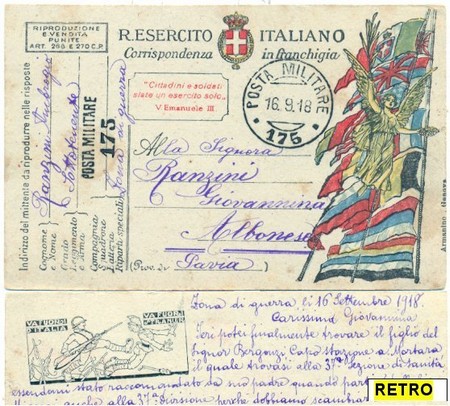 RIPRODUZIONE
E VENDITA
PUNITE
ART. 296 E 270 C.P.
R. ESERCITO ITALIANO
Corrispondenza in franchigia
"Cittadini e soldati
siate un esercito solo"
V. Emanuele III
POSTA MILITARE
16.9.18
175
Indirizzo del mittente da riprodurre nelle risposte
Cognome e Nome
Grado
Reggimento e Arma
Compagnia
Squadrone
Batteria
Reparti speciali
Ranzini Ambrogio
Sottotenente
POSTA MILITARE
175
Zona di guerra
Alla Signora
Ranzini
Giovannina
Albonese
(Prov. di Pavia)
Armanino - Genova
VA FUORI D'ITALIA
VA FUORI O STRANIER
Zona di guerra li 16 Settembre 1918.
Carissima Giovannina
Ieri potei finalmente trovare il figlio del
Signor Bergonzi Capo Stazione a Mortara
il quale trovasi alla 37ª Sezione di Sanità
essendomi stato raccomandato da suo padre quando
anche alla 37ª Divisione perchè dobbiamo
RETRO